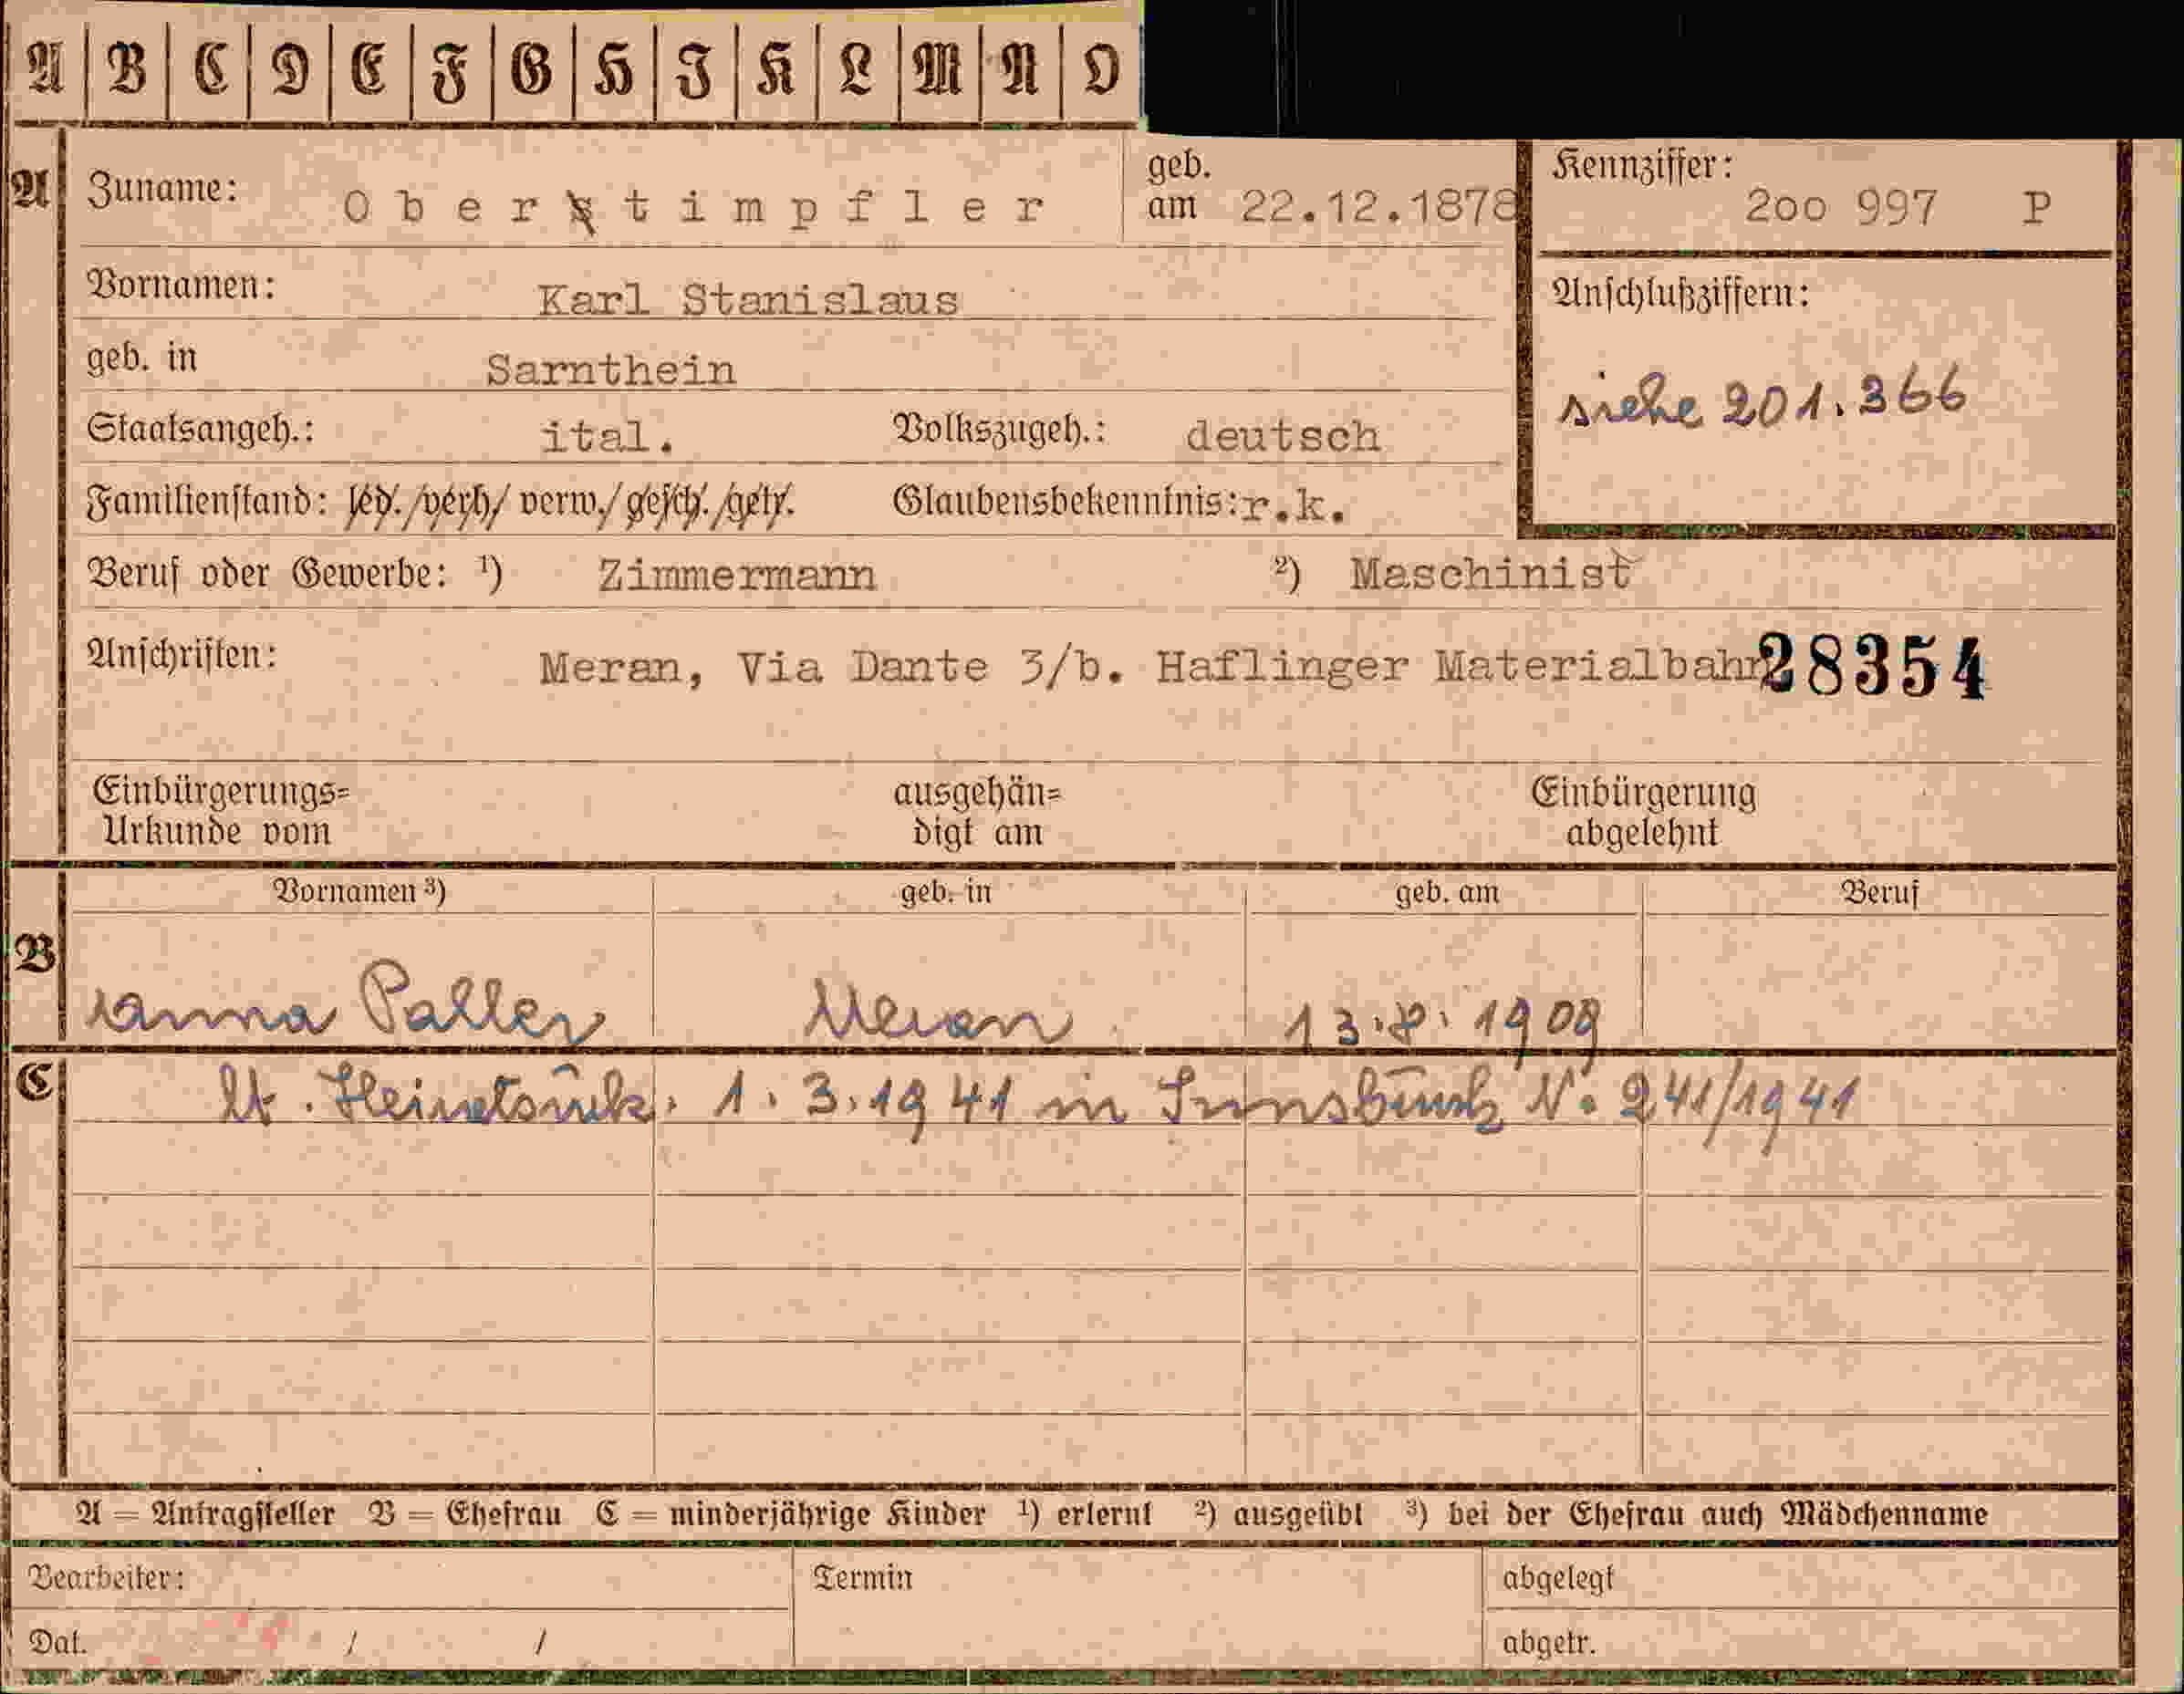 A B C D E F G H I K L M N O
A Zuname: Oberstimpfler geb. am 22.12.1878 Kennziffer: 2oo 997 P
Vornamen: Karl Stanislaus Anschlußziffern:
geb. in Sarnthein siehe 201.366
Staatsangeh.: ital. Volkszugeh.: deutsch
Familienstand: led./verh/ verw./gesch./getr. Glaubensbekenntnis: r.k.
Beruf oder Gewerbe: ¹) Zimmermann ²) Maschinist
Anschriften: Meran, Via Dante 3/b. Haflinger Materialbahn 28354
Einbürgerungs= ausgehän= Einbürgerung
Urkunde vom digt am abgelehnt
Vornamen ³) geb. in geb. am Beruf
B Anna Paller Meran 13.8.1909
C lt. Heiratsurk. 1.3.1941 in Innsbruck N. 241/1941
A = Antragsteller B = Ehefrau C = minderjährige Kinder ¹) erlernt ²) ausgeübt ³) bei der Ehefrau auch Mädchenname
Bearbeiter: Termin abgelegt
Dat. / / abgetr.